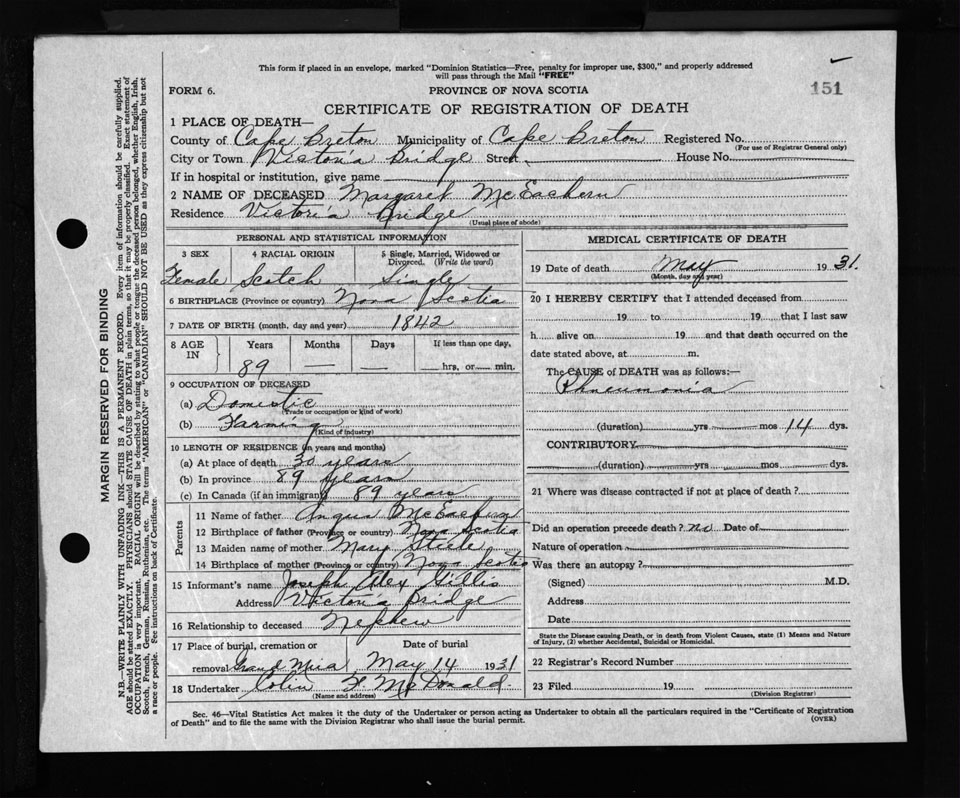 This form if placed in an envelope, marked "Dominion Statistics—Free, penalty for improper use, $300," and properly addressed
will pass through the Mail "FREE"
FORM 6.
PROVINCE OF NOVA SCOTIA
151
CERTIFICATE OF REGISTRATION OF DEATH
1 PLACE OF DEATH—
County of Cape Breton Municipality of Cape Breton Registered No.
(For use of Registrar General only)
City or Town Victoria Bridge Street House No.
If in hospital or institution, give name
2 NAME OF DECEASED Margaret McEachern
Residence Victoria Bridge
(Usual place of abode)
PERSONAL AND STATISTICAL INFORMATION
3 SEX 4 RACIAL ORIGIN 5 Single, Married, Widowed or
Divorced. (Write the word)
Female Scotch Single
6 BIRTHPLACE (Province or country) Nova Scotia
7 DATE OF BIRTH (month, day and year) 1842
8 AGE IN Years Months Days If less than one day,
89 — — hrs, or min.
9 OCCUPATION OF DECEASED
(a) Domestic
(Trade or occupation or kind of work)
(b) Farming
(Kind of industry)
10 LENGTH OF RESIDENCE (in years and months)
(a) At place of death 30 years
(b) In province 89 years
(c) In Canada (if an immigrant) 89 years
Parents
11 Name of father Angus McEachern
12 Birthplace of father (Province or country) Nova Scotia
13 Maiden name of mother Mary Steele
14 Birthplace of mother (Province or country) Nova Scotia
15 Informant's name Joseph Alex Gillis
Address Victoria Bridge
16 Relationship to deceased Nephew
17 Place of burial, cremation or Date of burial
removal Grand Mira May 14 1931
18 Undertaker Colin F. McDonald
(Name and address)
MEDICAL CERTIFICATE OF DEATH
19 Date of death May 1931.
(Month, day and year)
20 I HEREBY CERTIFY that I attended deceased from
19 to 19 that I last saw
h alive on 19 and that death occurred on the
date stated above, at m.
The CAUSE of DEATH was as follows:—
Phneumonia
(duration) yrs mos 14 dys.
CONTRIBUTORY
(duration) yrs mos dys.
21 Where was disease contracted if not at place of death?
Did an operation precede death? no Date of
Nature of operation
Was there an autopsy?
(Signed) M.D.
Address
Date
State the Disease causing Death, or in death from Violent Causes, state (1) Means and Nature
of Injury, (2) whether Accidental, Suicidal or Homicidal.
22 Registrar's Record Number
23 Filed 19
(Division Registrar)
Sec. 46—Vital Statistics Act makes it the duty of the Undertaker or person acting as Undertaker to obtain all the particulars required in the "Certificate of Registration
of Death" and to file the same with the Division Registrar who shall issue the burial permit. (OVER)
MARGIN RESERVED FOR BINDING
N.B.—WRITE PLAINLY WITH UNFADING INK—THIS IS A PERMANENT RECORD. Every item of information should be carefully supplied.
AGE should be stated EXACTLY. PHYSICIANS should STATE CAUSE OF DEATH in plain terms, so that it may be properly classified. Exact statement of
OCCUPATION is very important. RACIAL ORIGIN will be described by stating to what people or tongue the deceased person belonged, whether English, Irish,
Scotch, French, German, Russian, Ruthenian, etc. The terms "AMERICAN" or "CANADIAN" SHOULD NOT BE USED as they express citizenship but not
a race or people. See instructions on back of Certificate.